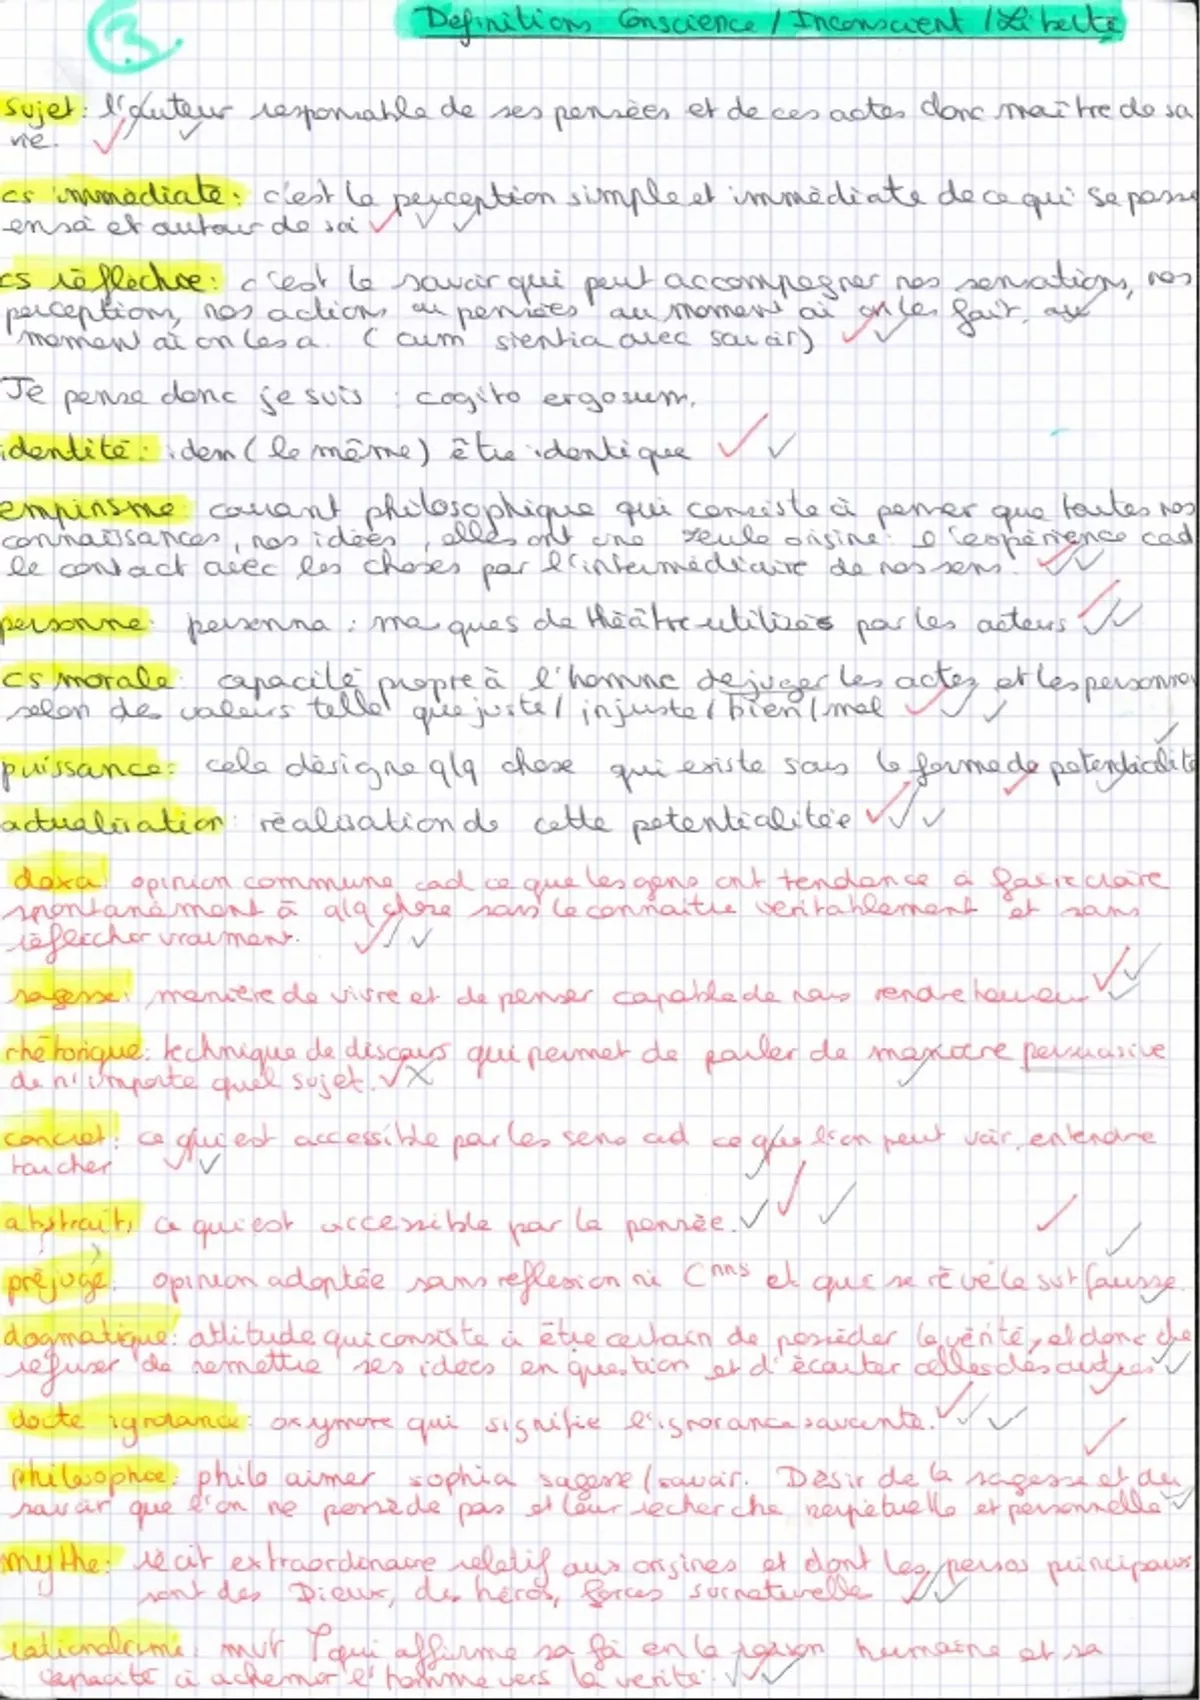 3
Definitions Conscience / Inconscient / Liberté
sujet : l'auteur responsable de ses pensées et de ces actes donc maître de sa
vie.
cs immédiate : c'est la perception simple et immédiate de ce qui se passe
en soi et autour de soi
cs réfléchie : c'est le savoir qui peut accompagner nos sensations, nos
perceptions, nos actions ou pensées au moment où on les fait, au
moment où on les a. (cum sientia avec savoir)
Je pense donc je suis : cogito ergo sum.
identité : idem (le même) être identique
empirisme : courant philosophique qui consiste à penser que toutes nos
connaissances, nos idées, elles ont une seule origine : l'expérience cad
le contact avec les choses par l'intermédiaire de nos sens.
personne : personna : masques de théâtre utilisés par les acteurs
cs morale : capacité propre à l'homme de juger les actes et les personnes
selon des valeurs telle que juste / injuste / bien / mal
puissance : cela désigne qlq chose qui existe sous la forme de potentialité
actualisation : réalisation de cette potentialitée
doxa : opinion commune cad ce que les gens ont tendance à faire croire
spontanément à qlq chose sans le connaitre veritablement et sans
réflécher vraiment.
sagesse : manière de vivre et de penser capable de nous rendre heureux
rhétorique : technique de discours qui permet de parler de manière persuasive
de n'importe quel sujet.
concret : ce qui est accessible par les sens cad ce que l'on peut voir, entendre
toucher
abstrait, ce qui est accessible par la pensée.
préjugé : opinion adoptée sans reflexion ni Cnns et qui se révèle sut fausse.
dogmatique : attitude qui consiste à être certain de posséder la vérité, et donc de
refuser de remettre ses idées en question et d'écouter celles des autres
docte ignorance : oxymore qui signifie l'ignorance savante.
philosophie : philo aimer sophia sagesse / savoir. Désir de la sagesse et du
savoir que l'on ne possède pas et leur recherche perpétuelle et personnelle
mythe : récit extraordinaire relatif aux origines et dont les persos principaux
sont des Dieux, des héros, forces surnaturelle
rationalisme : mvt qui affirme sa foi en la raison humaine et sa
capacité à acheminer l'homme vers la vérité.